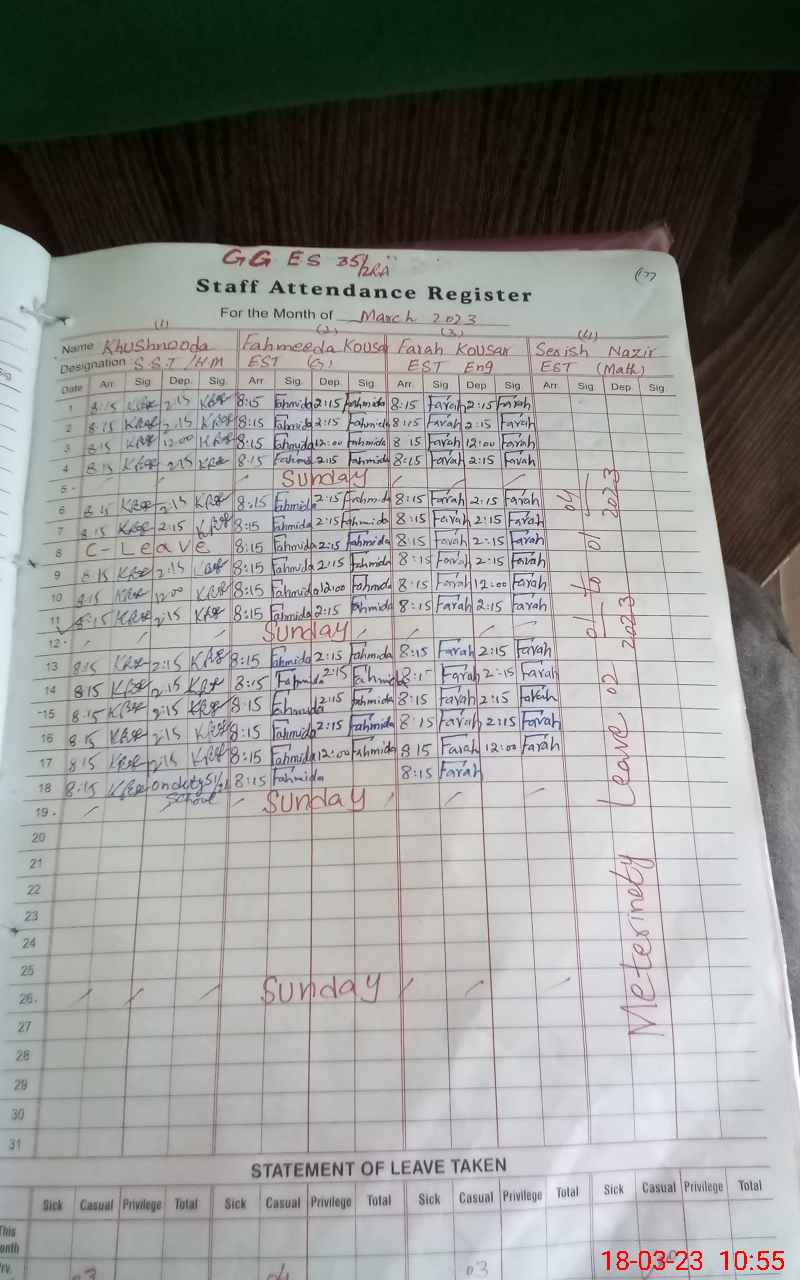 GG ES 35/2RA
Staff Attendance Register
For the Month of March 2023
(1) (2) (3) (4)
Name Khushnooda Fahmeeda Kousar Farah Kousar Serish Nazir
Designation S.S.T /HM EST (G) EST Eng EST (Math)
Date Arr. Sig. Dep. Sig. Arr. Sig. Dep. Sig. Arr. Sig. Dep. Sig. Arr. Sig. Dep. Sig.
1 8:15 2:15 8:15 Fahmida 2:15 Fahmida 8:15 Farah 2:15 Farah
2 8:15 2:15 8:15 Fahmida 2:15 Fahmida 8:15 Farah 2:15 Farah
3 8:15 12:00 8:15 Fahmida 12:00 Fahmida 8 15 Farah 12:00 Farah
4 8:15 2:15 8:15 Fahmida 2:15 Fahmida 8:15 Farah 2:15 Farah
5 Sunday
6 8:15 2:15 8:15 Fahmida 2:15 Fahmida 8:15 Farah 2:15 Farah
7 8:15 2:15 8:15 Fahmida 2:15 Fahmida 8:15 Farah 2:15 Farah
8 C-Leave 8:15 Fahmida 2:15 Fahmida 8:15 Farah 2:15 Farah
9 8:15 2:15 8:15 Fahmida 2:15 Fahmida 8:15 Farah 2:15 Farah
10 8:15 12:00 8:15 Fahmida 12:00 Fahmida 8:15 Farah 12:00 Farah
11 8:15 2:15 8:15 Fahmida 2:15 Fahmida 8:15 Farah 2:15 Farah
12 Sunday
13 8:15 2:15 8:15 Fahmida 2:15 Fahmida 8:15 Farah 2:15 Farah
14 8:15 2:15 8:15 Fahmida 2:15 Fahmida 8:15 Farah 2:15 Farah
15 8:15 2:15 8:15 Fahmida 2:15 Fahmida 8:15 Farah 2:15 Farah
16 8:15 2:15 8:15 Fahmida 2:15 Fahmida 8:15 Farah 2:15 Farah
17 8:15 2:15 8:15 Fahmida 12:00 Fahmida 8 15 Farah 12:00 Farah
18 8:15 on duty 8:15 Fahmida 8:15 Farah
School
19 Sunday
20
21
22
23
24
25
26 Sunday
27
28
29
30
31
Meterinety Leave 02 2023 to 01 2023
STATEMENT OF LEAVE TAKEN
Sick Casual Privilege Total Sick Casual Privilege Total Sick Casual Privilege Total Sick Casual Privilege Total
This
03 04 03
18-03-23 10:55